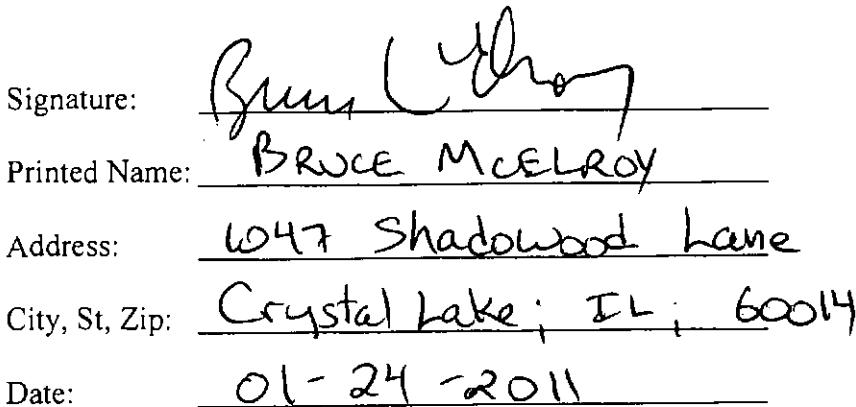 Signature: Bruce McElroy
Printed Name: BRUCE MCELROY
Address: 1047 Shadowood Lane
City, St, Zip: Crystal Lake; IL; 60014
Date: 01-24-2011